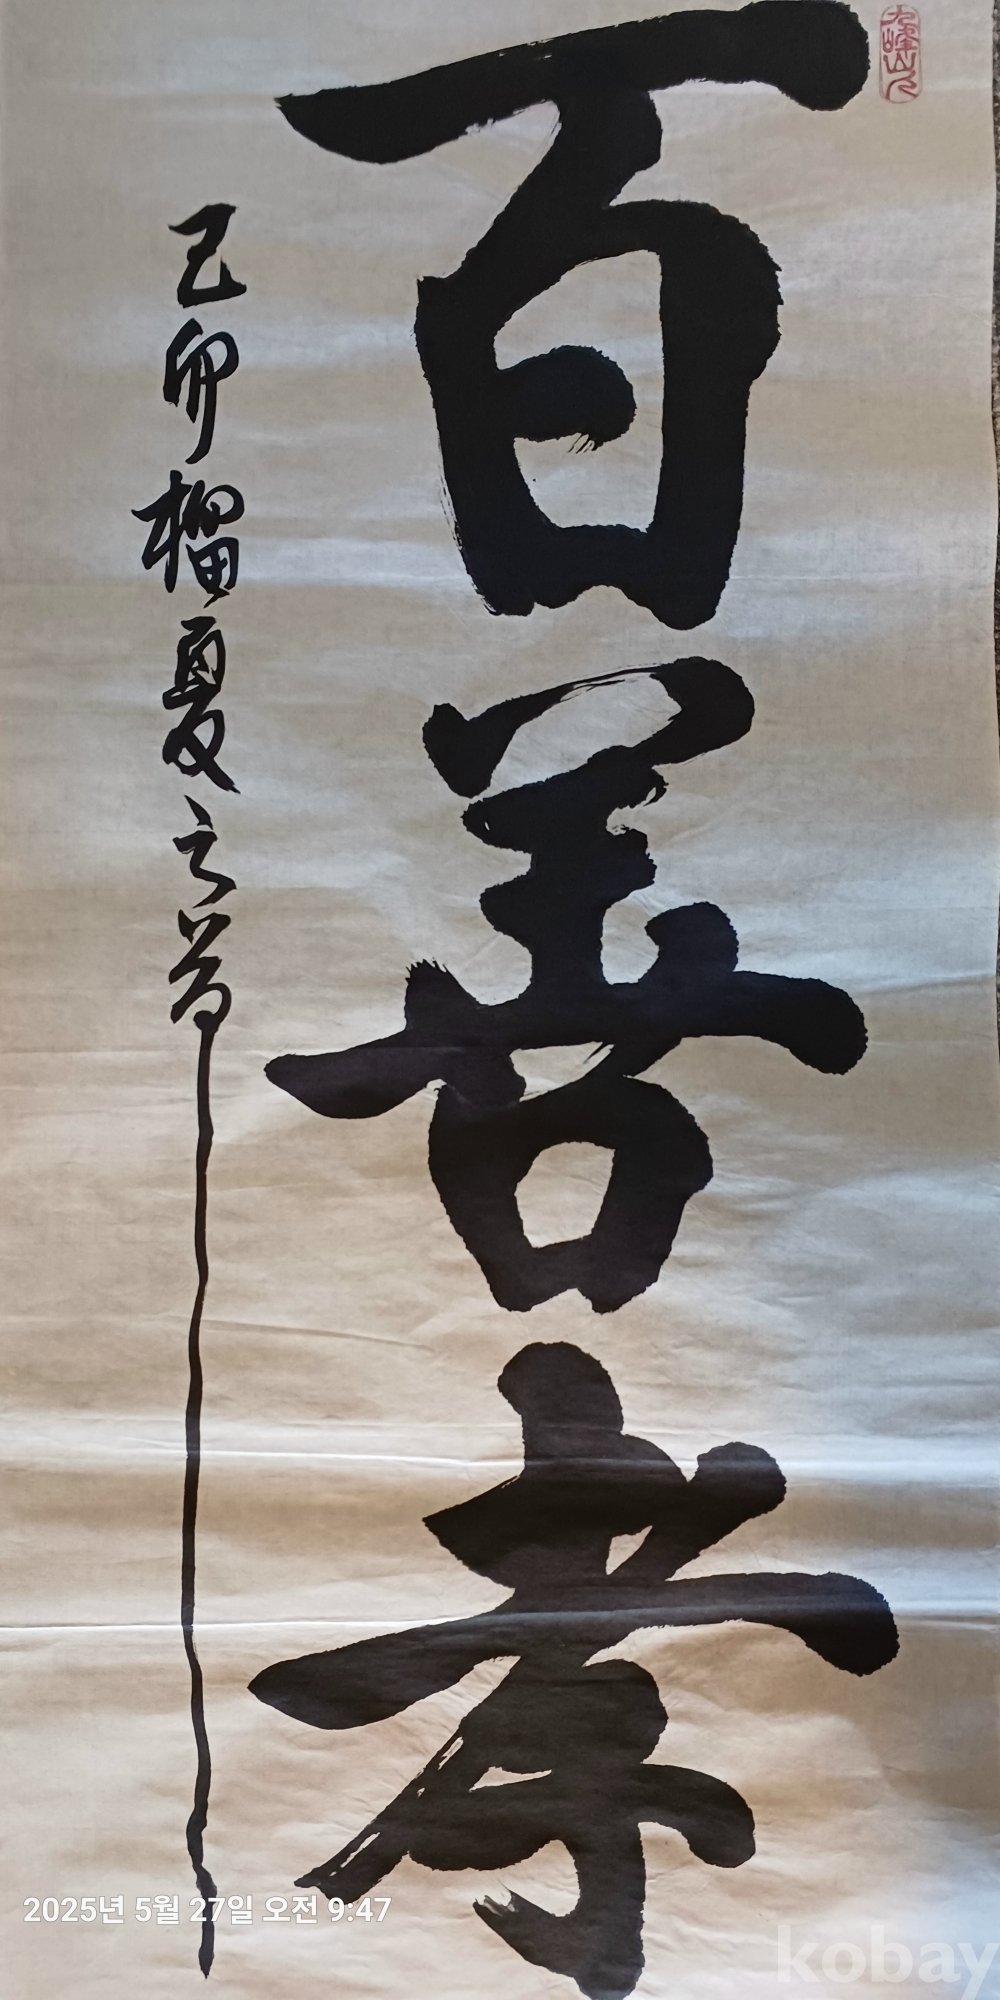 九峰山人
百善孝
己卯榴夏之節
2025년 5월 27일 오전 9:47
kobay